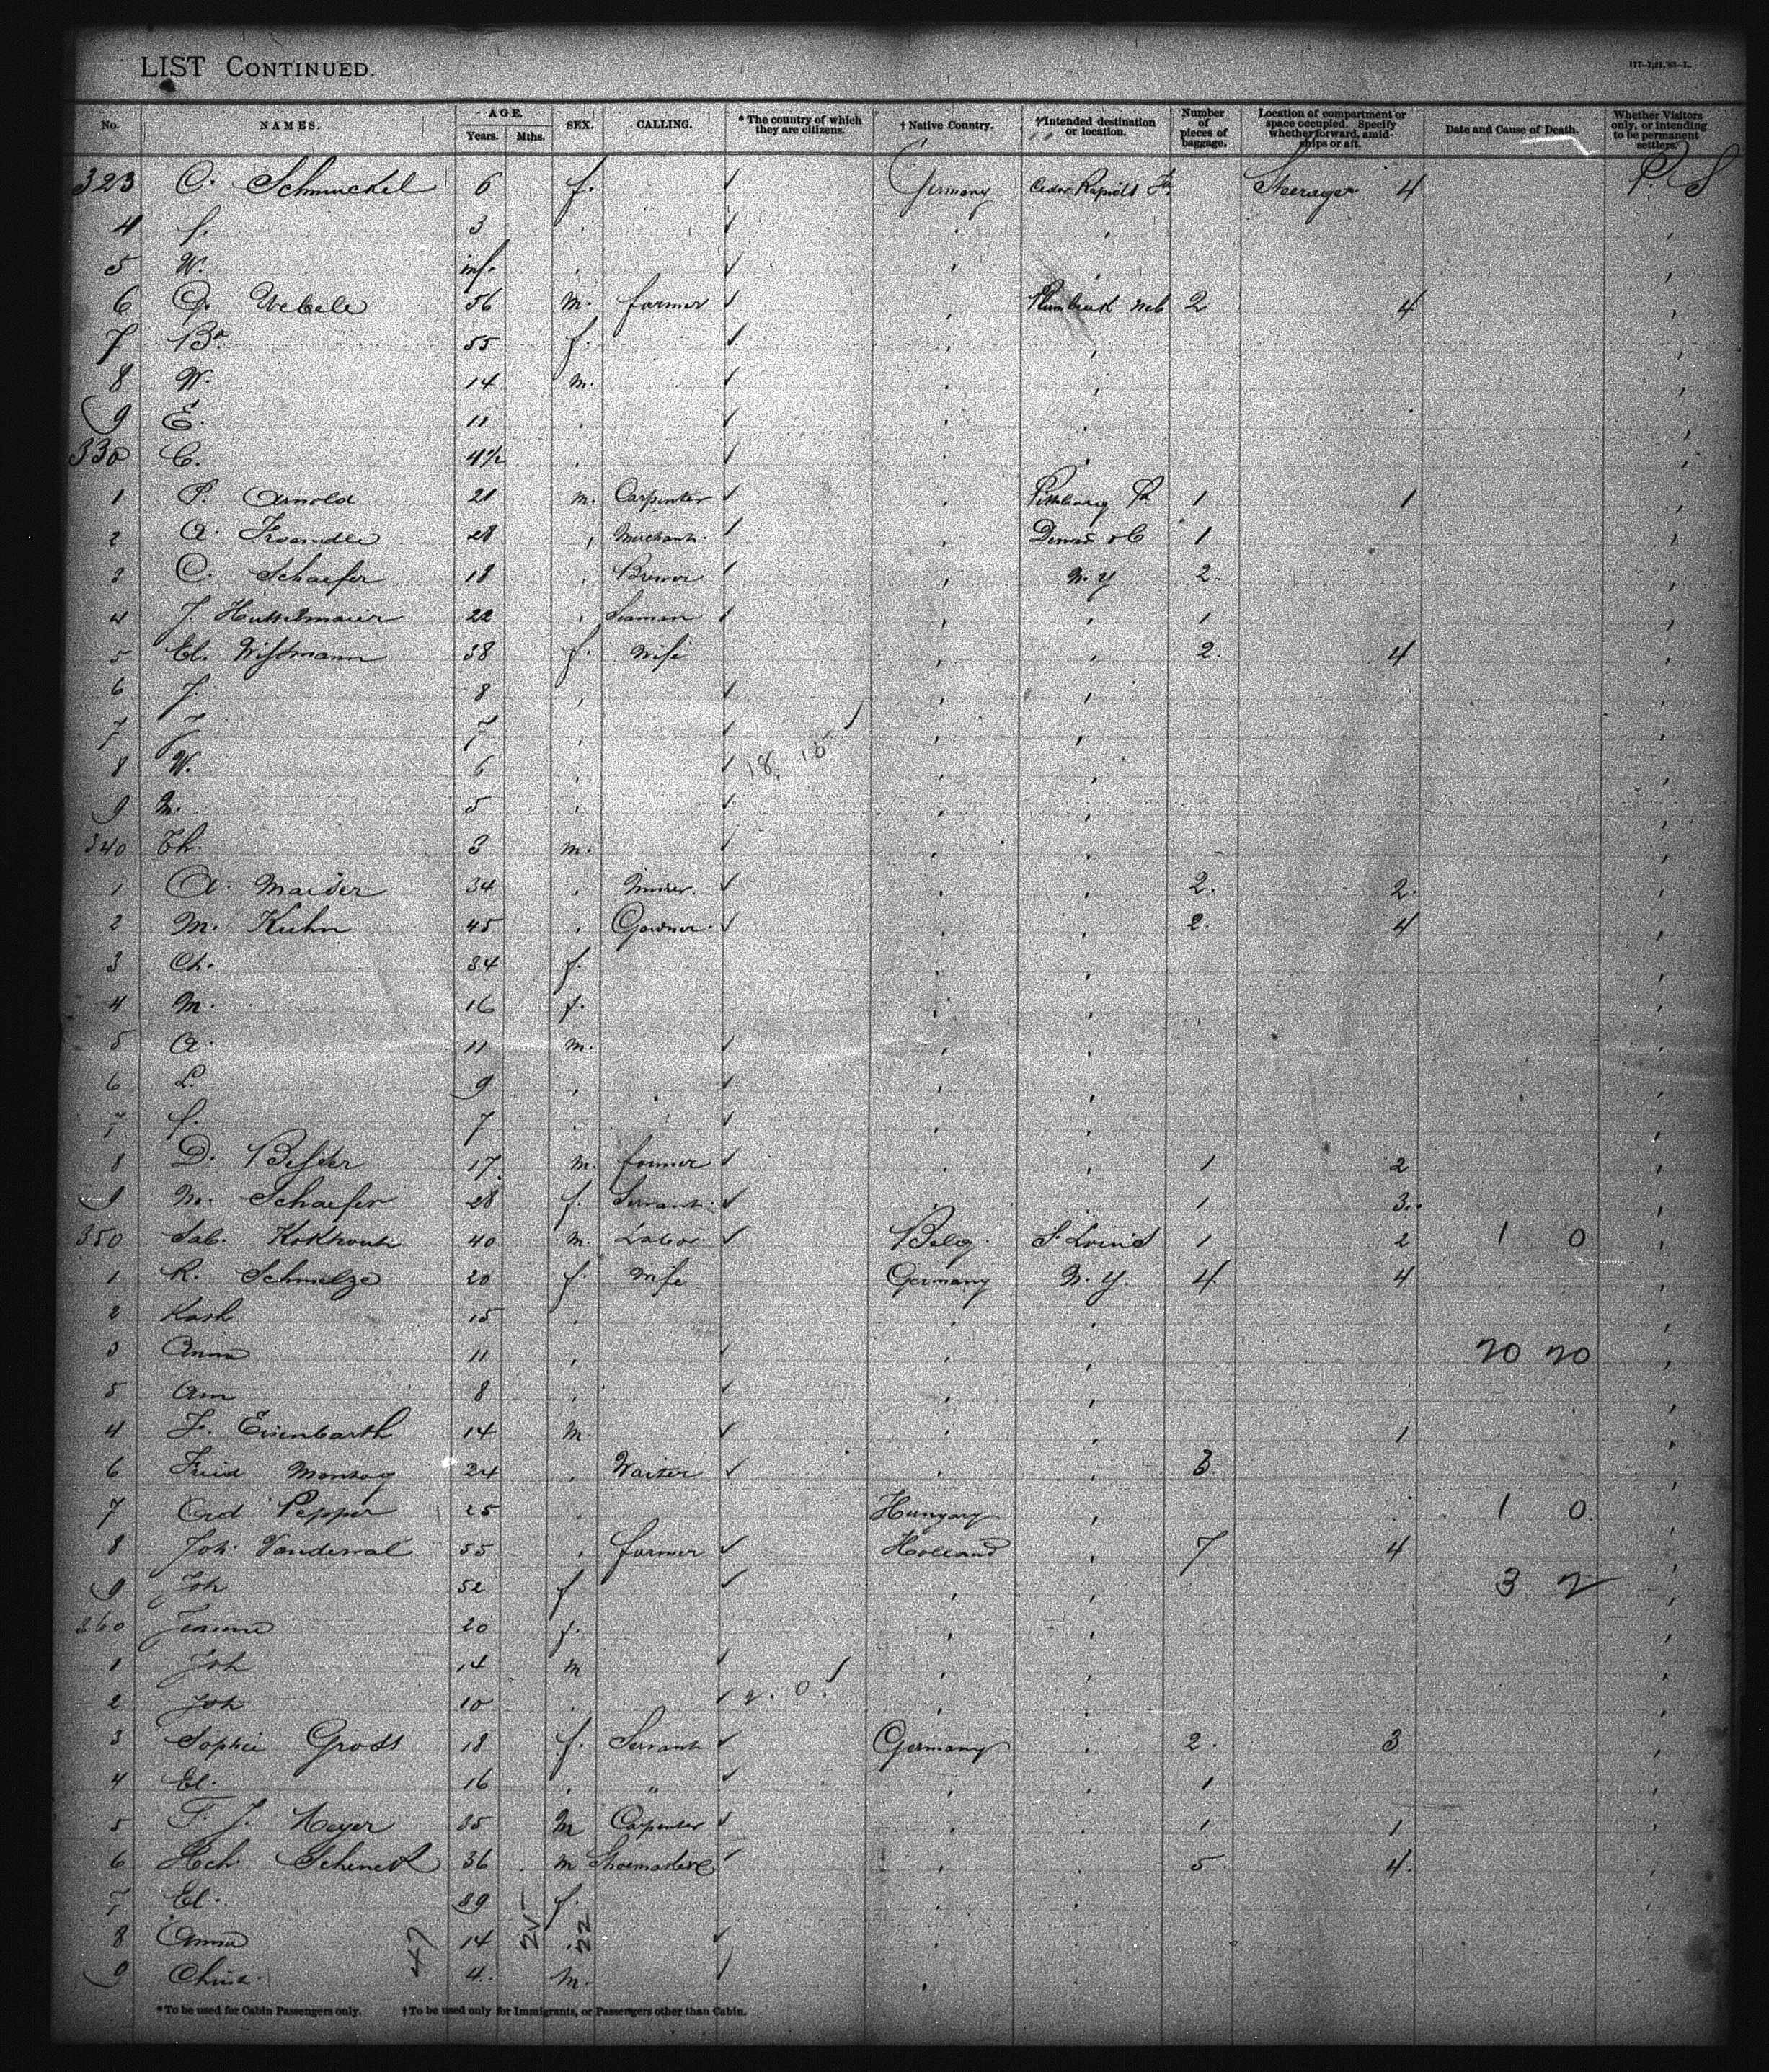 LIST CONTINUED.
No. NAMES. AGE. Years. Mths. SEX. CALLING. * The country of which they are citizens. † Native Country. † Intended destination or location. Number of pieces of baggage. Location of compartment or space occupied. Specify whether forward, amidships or aft. Date and Cause of Death. Whether Visitors only, or intending to be permanent settlers.
323 C. Schmuckel 6 f. ✓ Germany Cedar Rapids Ia. Steerage 4 P. S
4 f. 3 ✓
5 W. inf. ✓
6 G. Uebele 56 m. farmer ✓ Neb 2 4
7 Br. 55 f. ✓
8 W. 14 m. ✓
9 E. 11 ✓
330 C. 4½ ✓
1 P. Arnold 21 m. Carpenter ✓ Pittsburg Pa 1 1
2 A. 28 Merchant. ✓ 1
3 C. Schaefer 18 Brewer ✓ N.Y 2.
4 J. Huttelmaier 22 Seaman ✓ 1
5 El. Wissmann 38 f. Wife 2. 4
6 J. 8 ✓
7 J. 7 ✓
8 W. 6 ✓ 18. 16
9 M. 5 ✓
340 Th. 3 m. ✓
1 A. Maider 34 ✓ 2. 2.
2 M. Kuhn 45 Gardner. ✓ 2. 4
3 Ch. 34 f.
4 M. 16 f.
5 A. 11 m. ✓
6 L. 9 ✓
7 f. 7 ✓
8 D. 17. m. farmer ✓ 1 2
9 M. Schaefer 28 f. Servant. ✓ 1 3.
350 Sab. 40 m. Labor. ✓ Belg. S. Louis 1 2 1 0
1 R. Schmelze 20 f. Wife Germany N.Y. 4 4
2 Kath 15
3 Anna 11 ✓ 20 20
5 Ann 8 ✓
4 F. Eisenbarth 14 m. ✓ 1
6 Fried Montag 24 Waiter ✓ 3
7 Pepper 25 Hungary 1 0.
8 Joh. Vanderwal 55 farmer ✓ Holland 7 4
9 Joh 52 f ✓ 3 2
360 20 f.
1 Joh 14 m ✓
2 Joh 10 ✓ 2. 0.
3 Sophie Gross 18 f. Servant ✓ Germany 2. 3
4 El. 16 " ✓ 1
5 F. J. Meyer 35 M Carpenter ✓ 1 1
6 Hch. Schenck 36 m Shoemaker ✓ 5. 4.
7 El. 39 f.
8 Anna 14 ✓
9 4. m. ✓
47 25 22
* To be used for Cabin Passengers only. † To be used only for Immigrants, or Passengers other than Cabin.